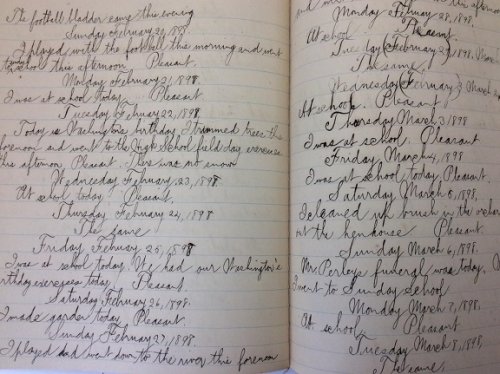 The football bladder came this evening
Sunday February 20, 1898
I played with the football this morning and went
to school this afternoon. Pleasant.
Monday February 21, 1898.
I was at school today. Pleasant.
Tuesday February 22, 1898.
Today is Washington's birthday. I trimmed trees this
forenoon and went to the High School field day exercises
this afternoon. Pleasant. There was no snow
Wednesday February 23, 1898.
At school today. Pleasant.
Thursday February 24, 1898
The same
Friday February 25, 1898
I was at school today. We had our Washington's
birthday exercises today. Pleasant.
Saturday February 26, 1898.
I made garden today. Pleasant.
Sunday February 27, 1898.
I played and went down to the river this forenoon
afternoon
Monday February 28, 1898.
At school Pleasant.
Tuesday
The same
Wednesday
At school. Pleasant
Thursday March 3 1898
I was at school. Pleasant
Friday March 4, 1898
I was at school today. Pleasant
Saturday March 5, 1898,
I cleaned up brush in the
at the henhouse Pleasant.
Sunday March 6, 1898.
Mr. Perley's funeral was today.
I went to Sunday school
Monday March 7, 1898
At school. Pleasant
Tuesday March 8, 1898
The same.